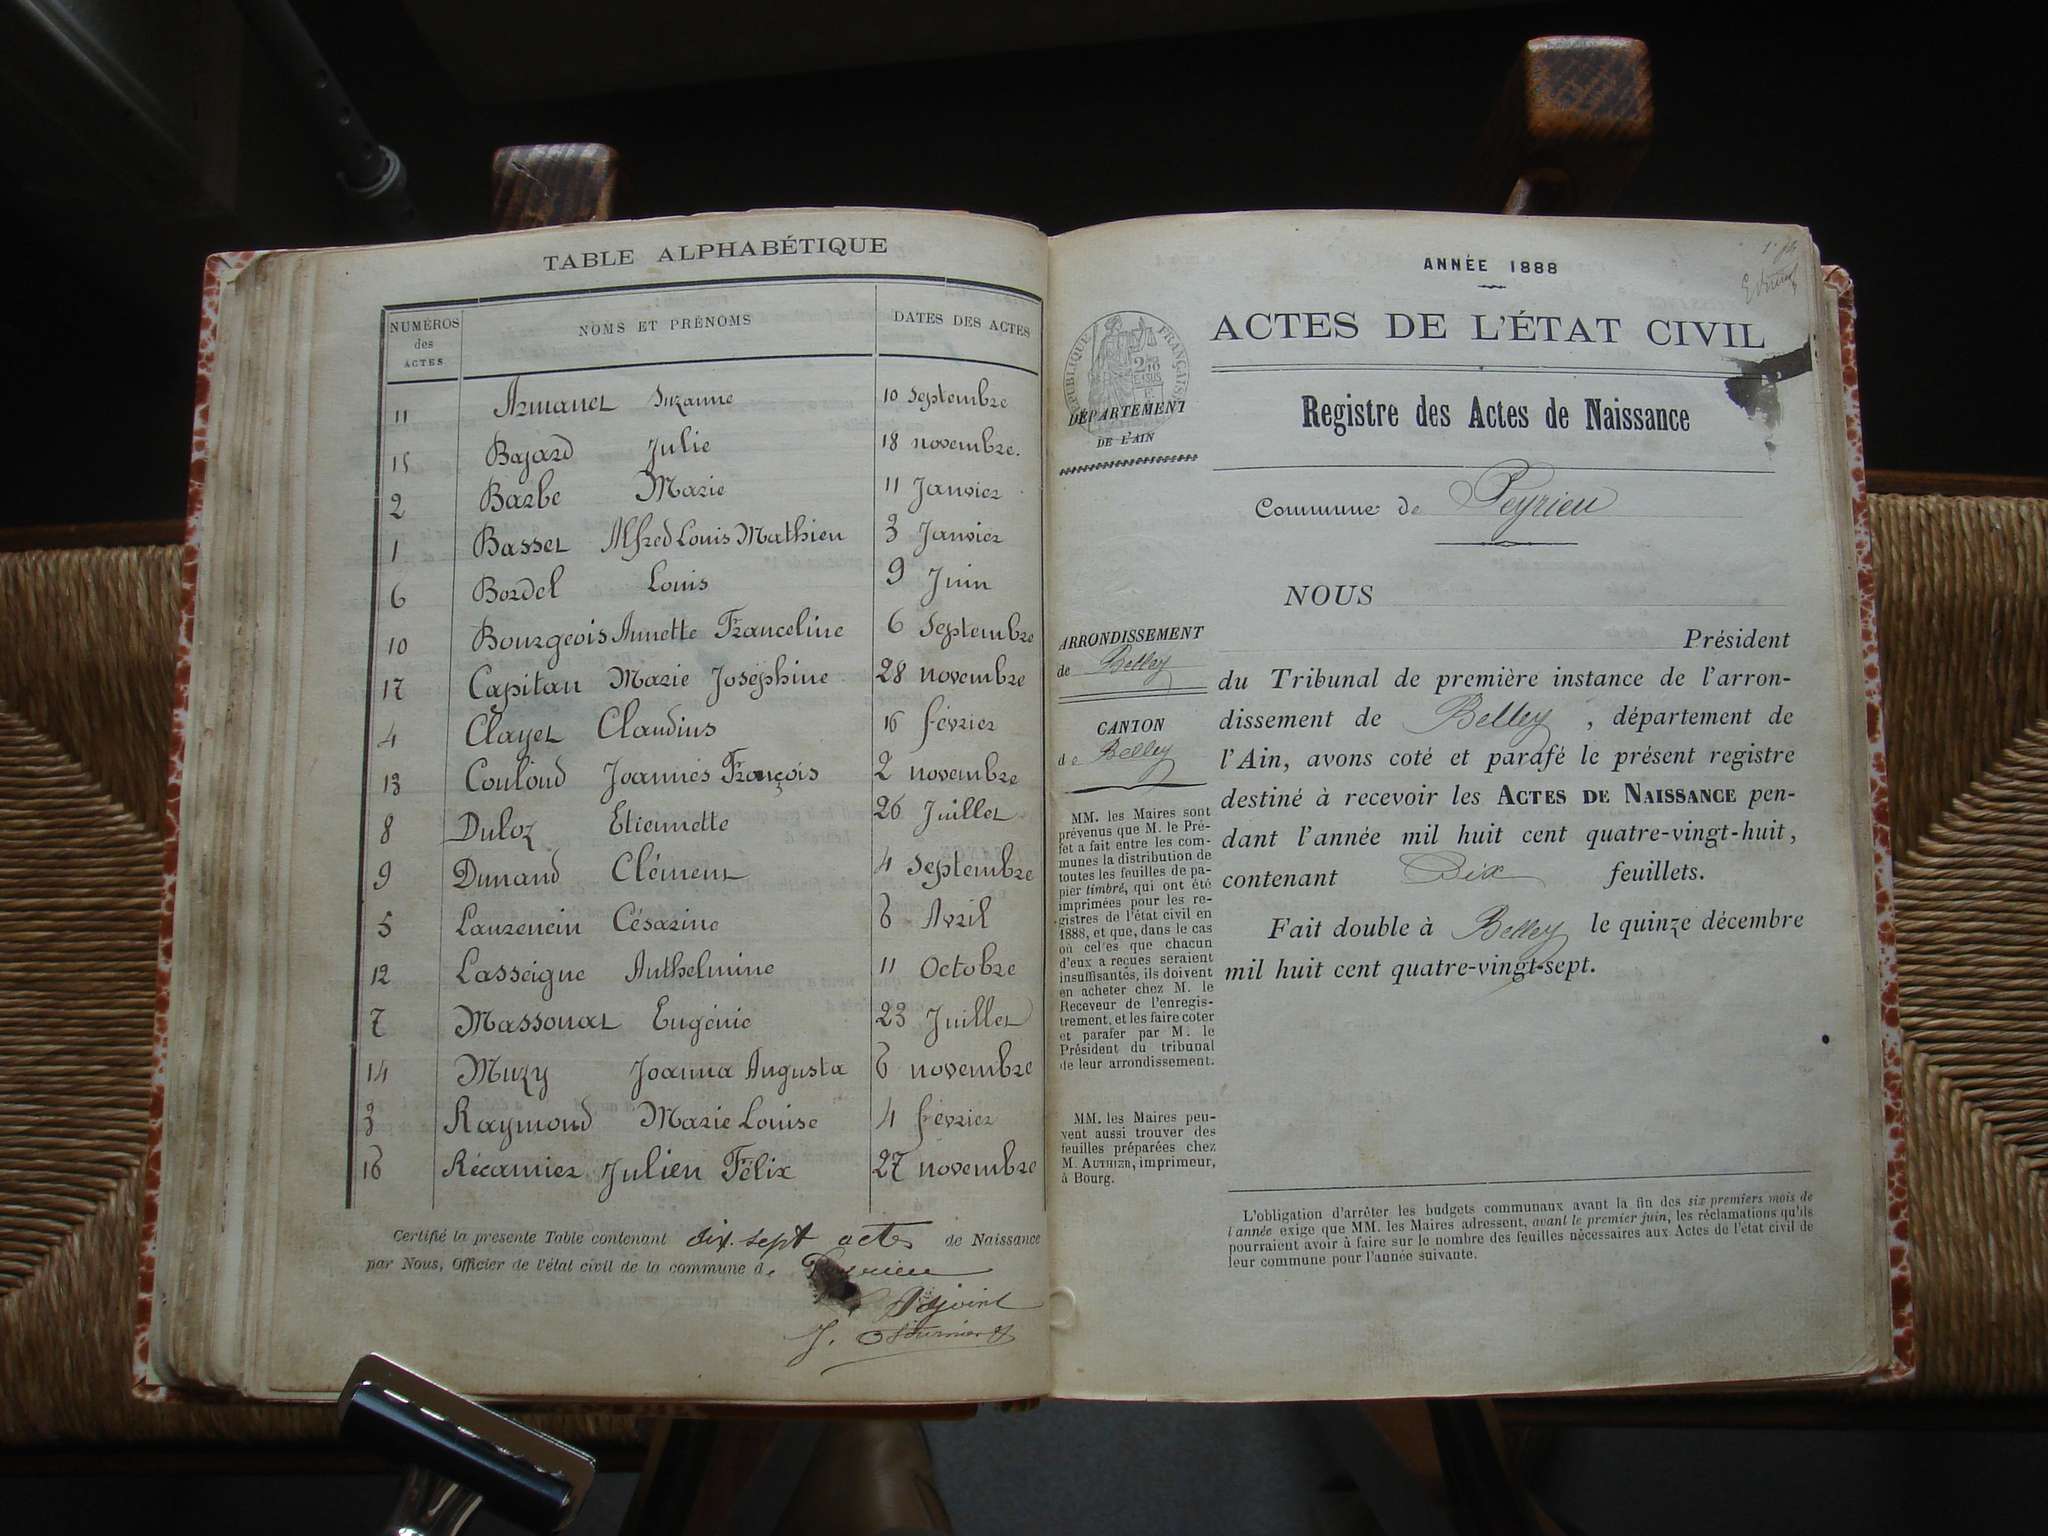 TABLE ALPHABÉTIQUE
NUMÉROS des ACTES NOMS ET PRÉNOMS DATES DES ACTES
11 Armanet Suzanne 10 Septembre
15 Bajard Julie 18 novembre.
2 Barbe Marie 11 Janvier
1 Basset Alfred Louis Mathieu 3 Janvier
6 Bordel Louis 9 Juin
10 Bourgeois Annette Franceline 6 Septembre
17 Capitan Marie Joséphine 28 novembre
4 Clayet Claudius 16 février
13 Couloud Joannès François 2 novembre
8 Duloz Etiennette 26 Juillet
9 Dunand Clément 4 Septembre
5 Laurencin Césarine 6 Avril
12 Lasseigne Anthelmine 11 Octobre
7 Massonat Eugénie 23 Juillet
14 Muzy Joanna Augusta 6 novembre
3 Raymond Marie Louise 4 février
16 Récamier Julien Félix 27 novembre
Certifié la présente Table contenant dix-sept actes de Naissance
par Nous, Officier de l'état civil de la commune de Peyrieu
Adjoint
J.
ANNÉE 1888
ACTES DE L'ÉTAT CIVIL
RÉPUBLIQUE FRANÇAISE
Registre des Actes de Naissance
DÉPARTEMENT
DE L'AIN
Commune de Peyrieu
NOUS
Président
du Tribunal de première instance de l'arron-
dissement de Belley, département de
l'Ain, avons coté et parafé le présent registre
destiné à recevoir les ACTES DE NAISSANCE pen-
dant l'année mil huit cent quatre-vingt-huit,
contenant Dix feuillets.
Fait double à Belley le quinze décembre
mil huit cent quatre-vingt-sept.
ARRONDISSEMENT
de Belley
CANTON
de Belley
MM. les Maires sont
prévenus que M. le Pré-
fet a fait entre les com-
munes la distribution de
toutes les feuilles de pa-
pier timbré, qui ont été
imprimées pour les re-
gistres de l'état civil en
1888, et que, dans le cas
où celles que chacun
d'eux a reçues seraient
insuffisantes, ils doivent
en acheter chez M. le
Receveur de l'enregis-
trement, et les faire coter
et parafer par M. le
Président du tribunal
de leur arrondissement.
MM. les Maires peu-
vent aussi trouver des
feuilles préparées chez
M. AUTHIER, imprimeur,
à Bourg.
L'obligation d'arrêter les budgets communaux avant la fin des six premiers mois de
l'année exige que MM. les Maires adressent, avant le premier juin, les réclamations qu'ils
pourraient avoir à faire sur le nombre des feuilles nécessaires aux Actes de l'état civil de
leur commune pour l'année suivante.